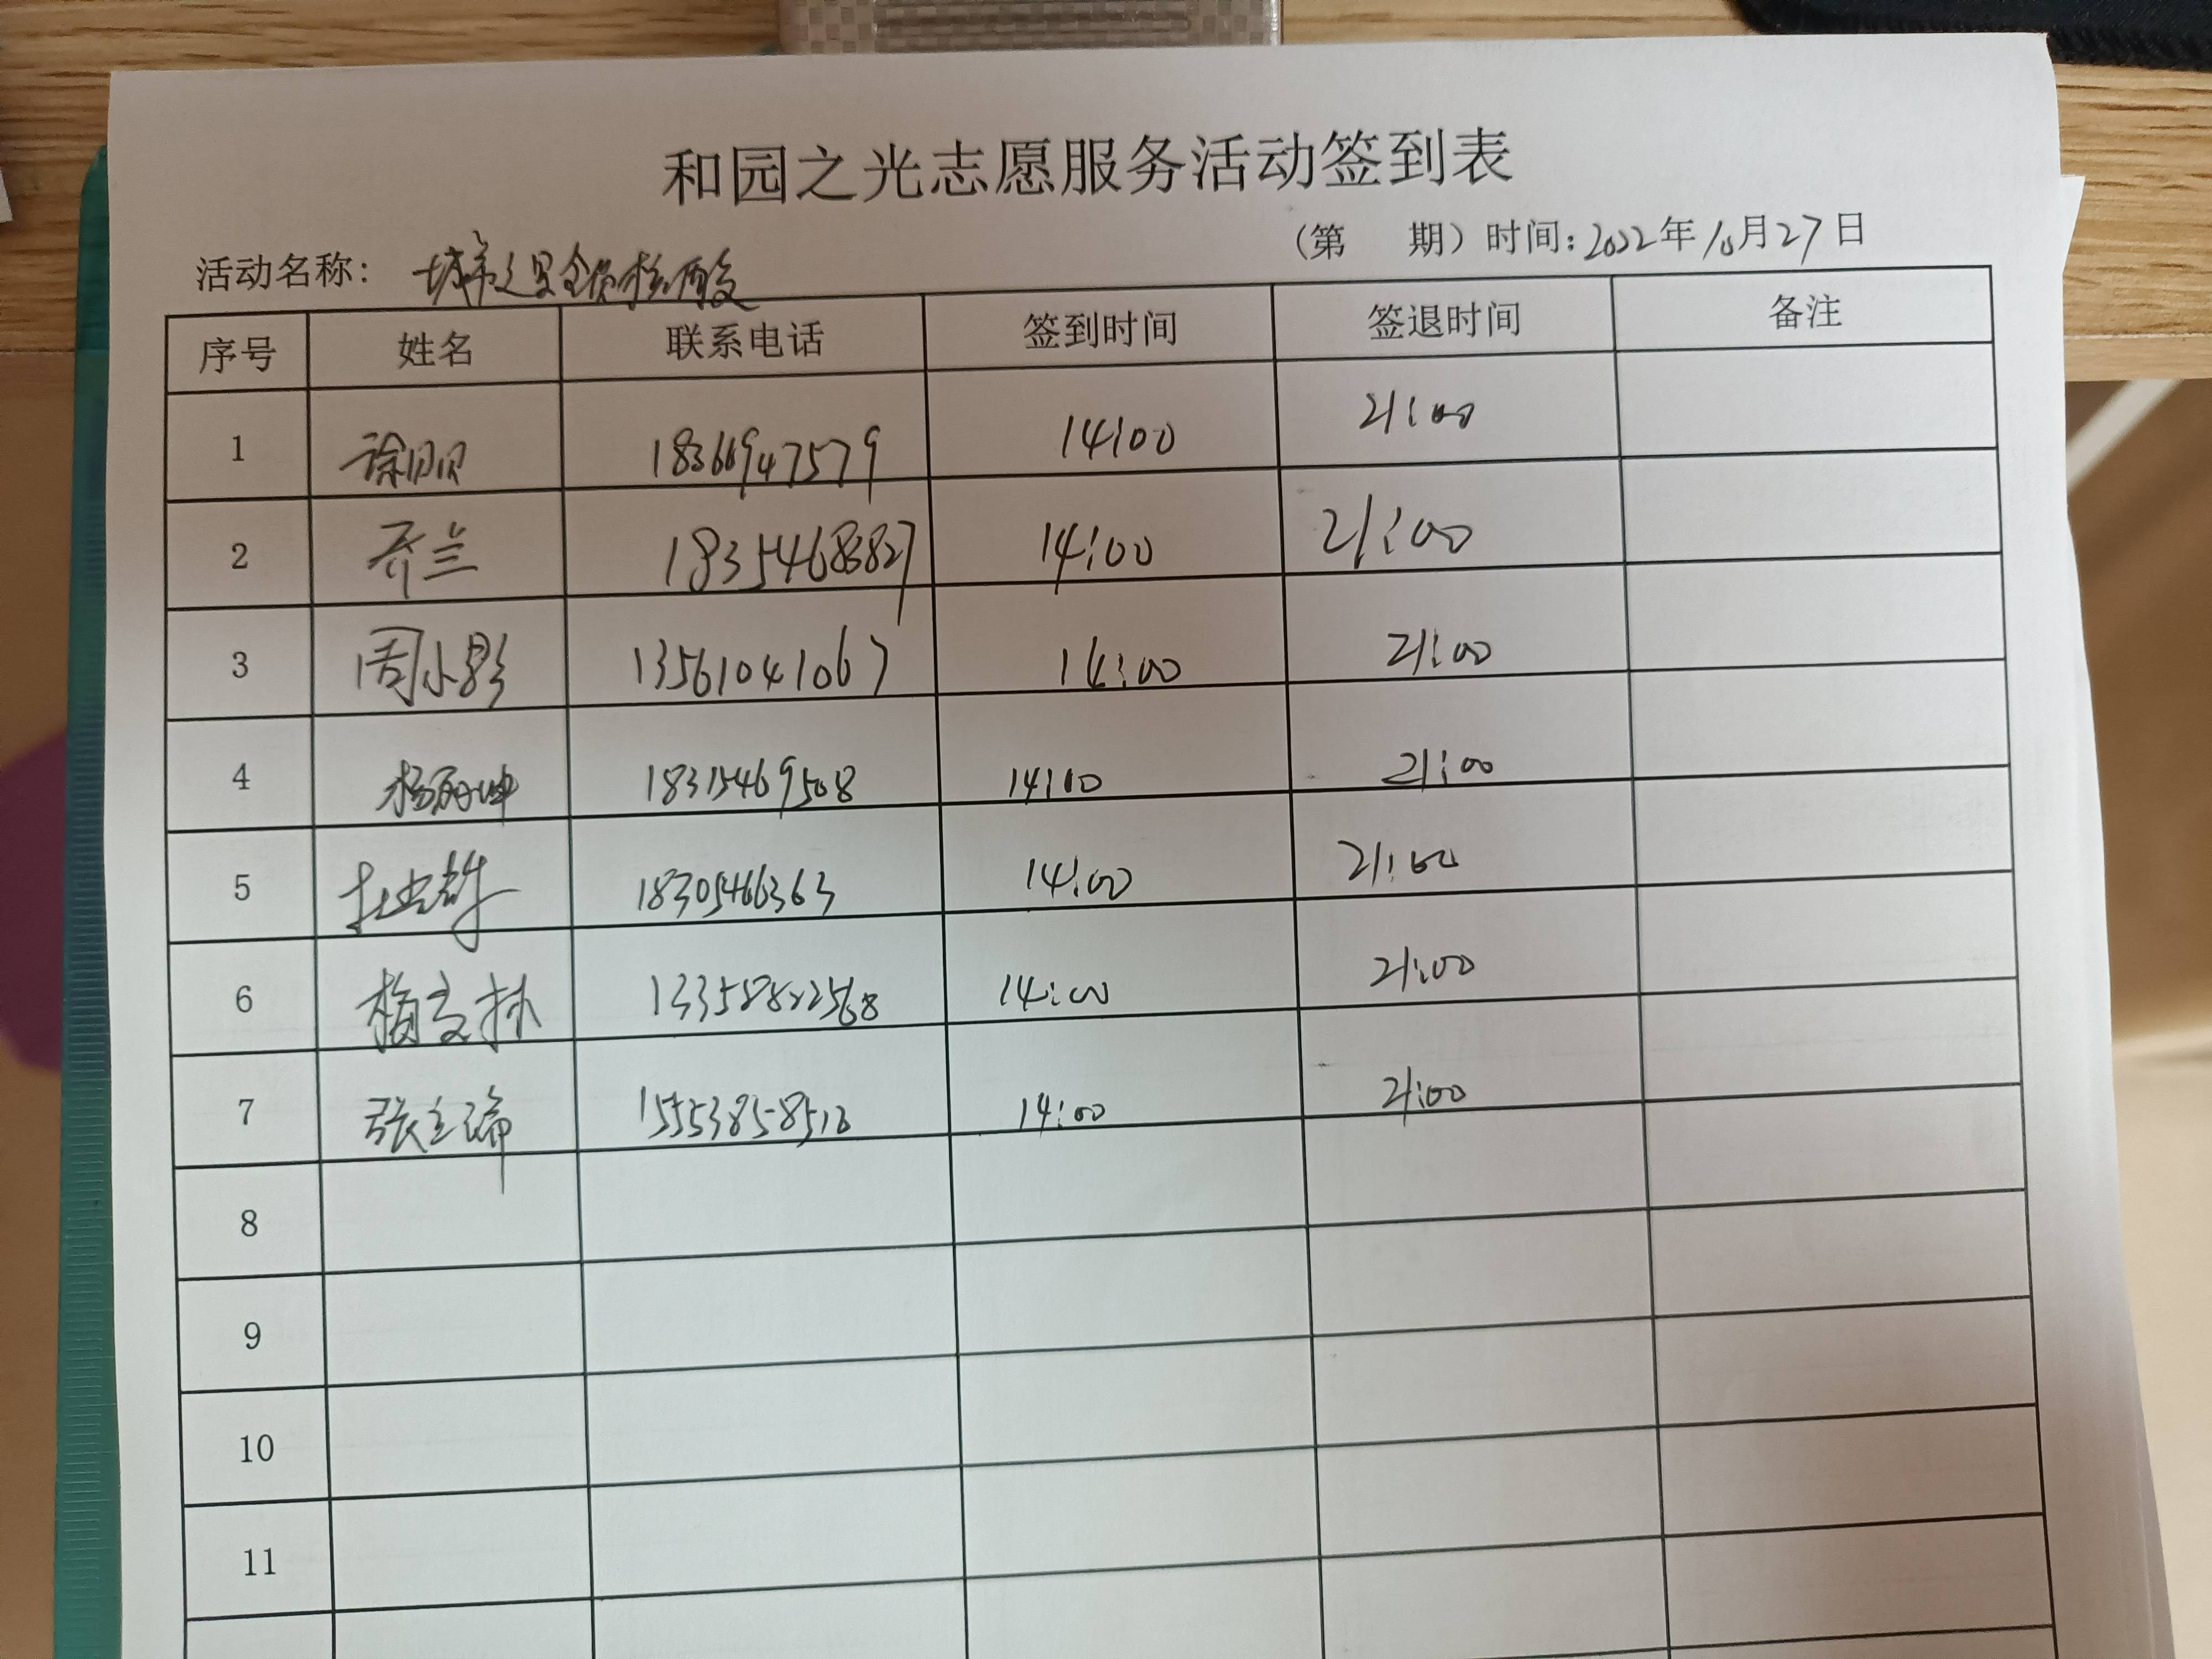 和园之光志愿服务活动签到表
(第 期) 时间: 2022年10月27日
活动名称: 城市之星全员核酸
序号 姓名 联系电话 签到时间 签退时间 备注
1 徐贝贝 18366947579 14:00 21:00
2 齐兰 18354683827 14:00 21:00
3 周小影 13561041067 14:00 21:00
4 杨丽坤 18315469508 14:00 21:00
5 18305466363 14:00 21:00
6 13358822568 14:00 21:00
7 张立瑞 15553858510 14:00 21:00
8
9
10
11